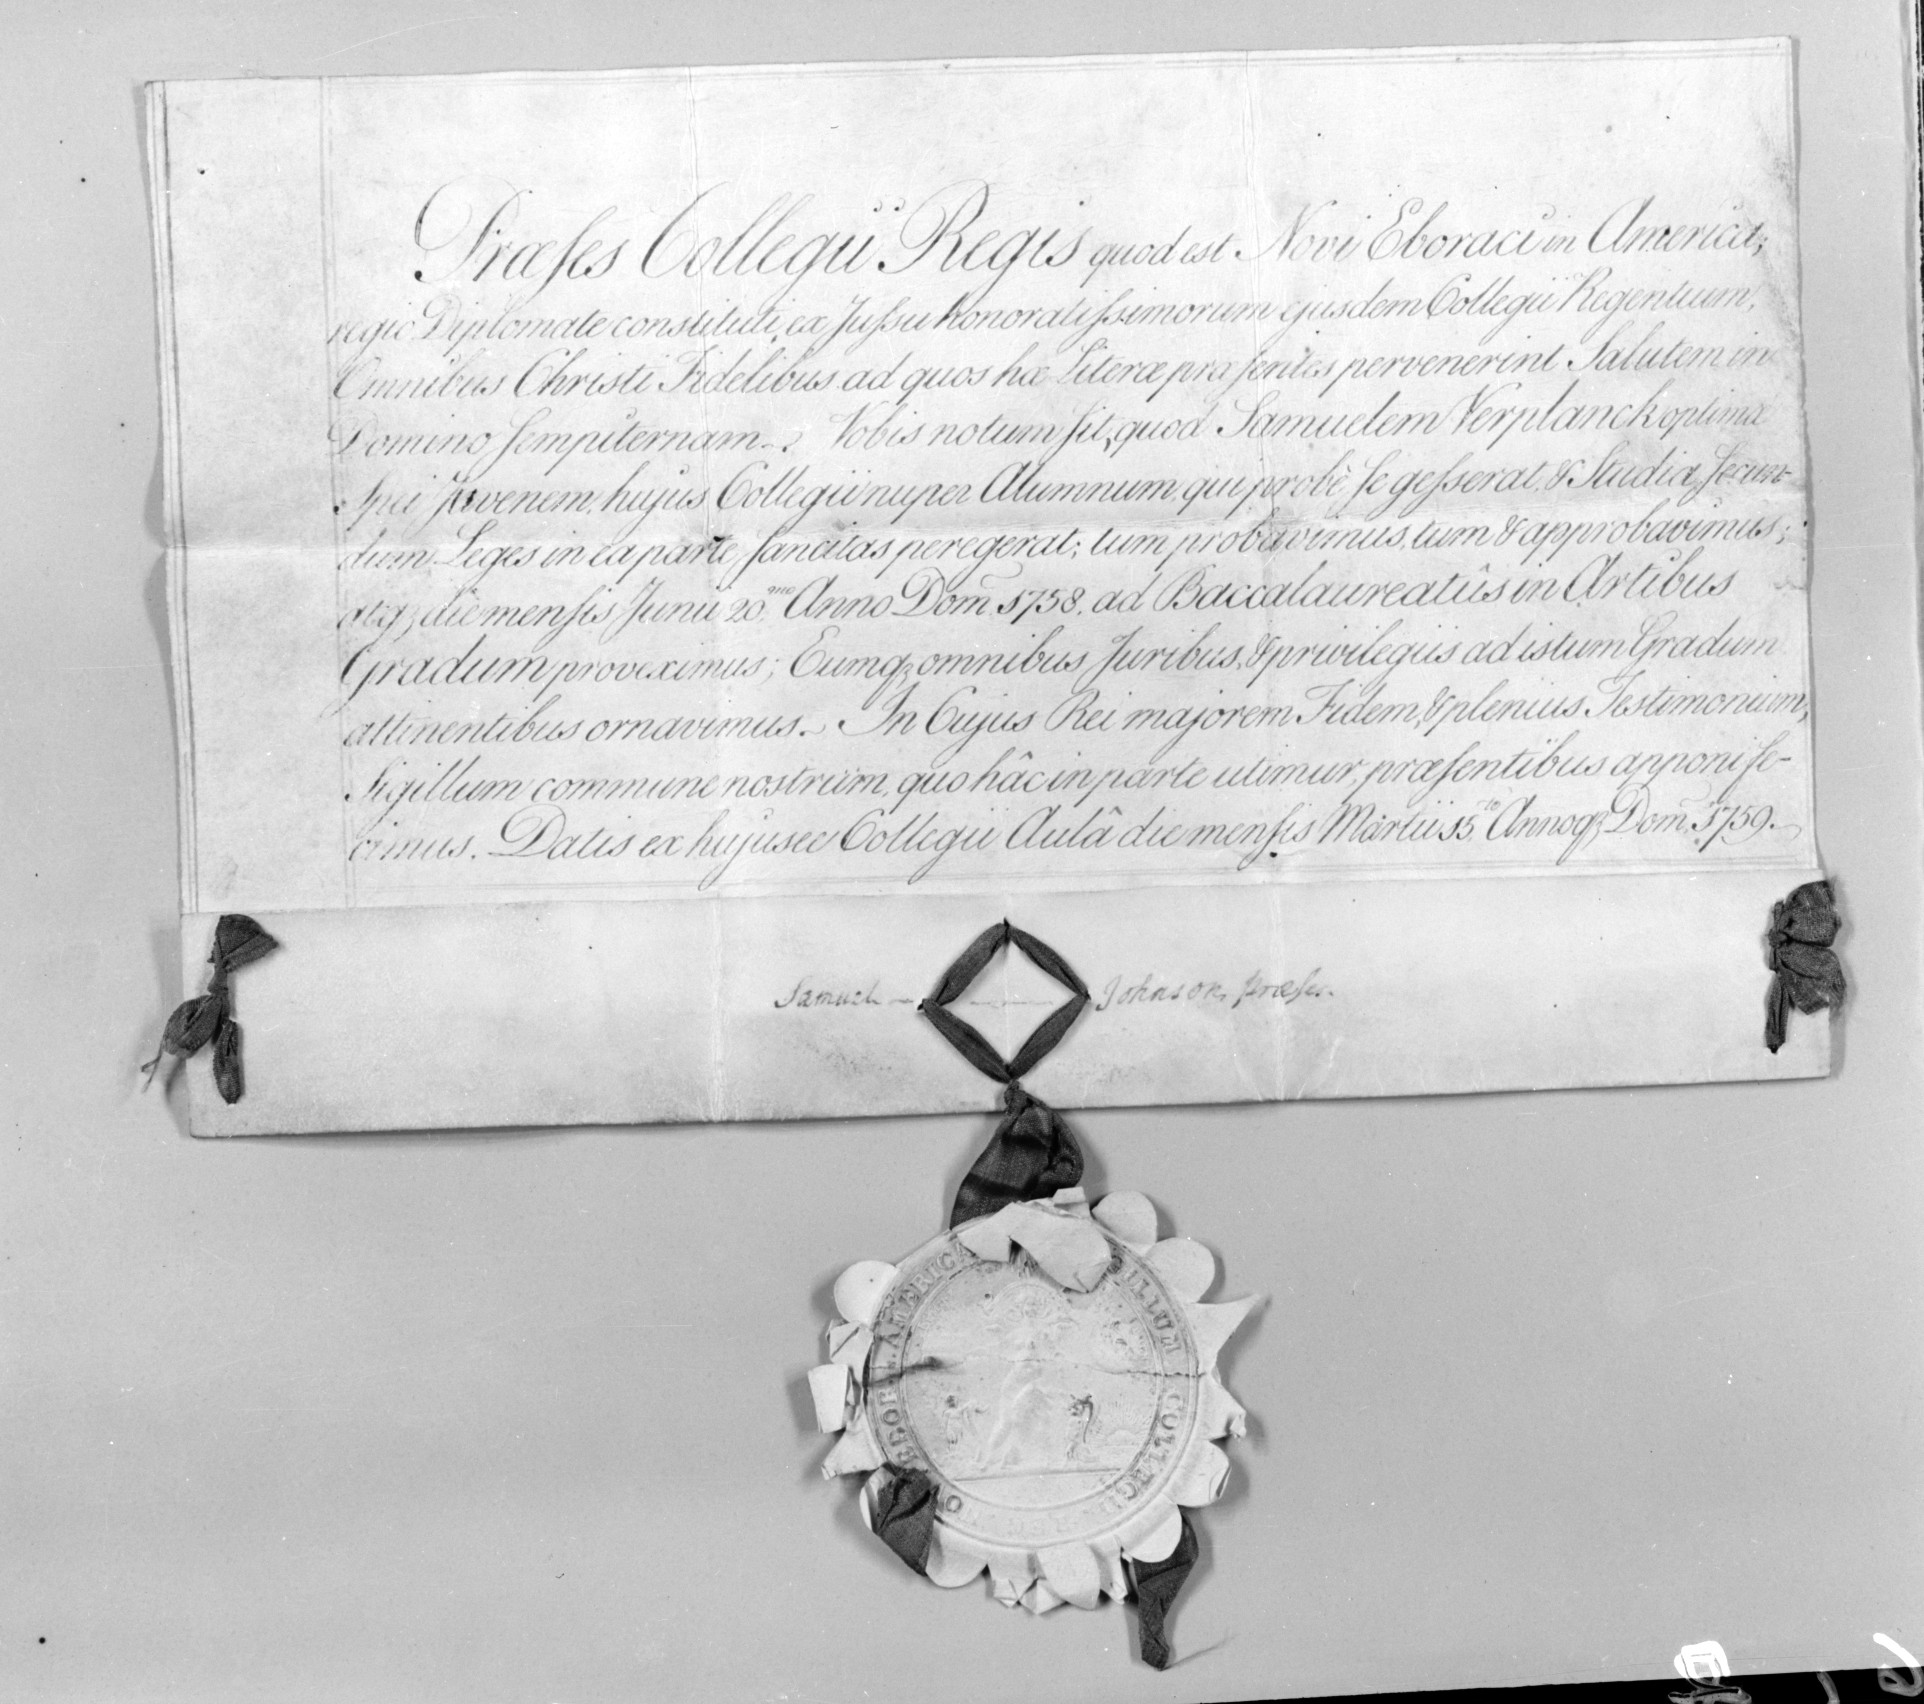 Præses Collegii Regis quod est Novi Eboraci in America;
regio Diplomate constituti, ex Jussu honoratissimorum ejusdem Collegii Regentium,
Omnibus Christi Fidelibus ad quos hæ Literæ præsentes pervenerint Salutem in
Domino sempiternam. Vobis notum sit, quod Samuelem Verplanck optimæ
Spei Juvenem, hujus Collegii nuper Alumnum, qui probè se gesserat, & Studia, secun-
dum Leges in ea parte sancitas peregerat; tum probavimus, tum & approbavimus;
atqz die mensis Junii 20.mo Anno Dom 1758. ad Baccalaureatûs in Artibus
Gradum proveximus; Eumqz omnibus Juribus, & privilegiis ad istum Gradum
attinentibus ornavimus. In Cujus Rei majorem Fidem, & plenius Testimonium,
Sigillum commune nostrum, quo hâc in parte utimur, præsentibus apponi fe-
cimus. Datis ex hujusce Collegii Aulâ die mensis Martii 15.to Annoqz Dom. 1759.
Samuel Johnson, præses.
ILLUM COLLEGII REG AMERICA